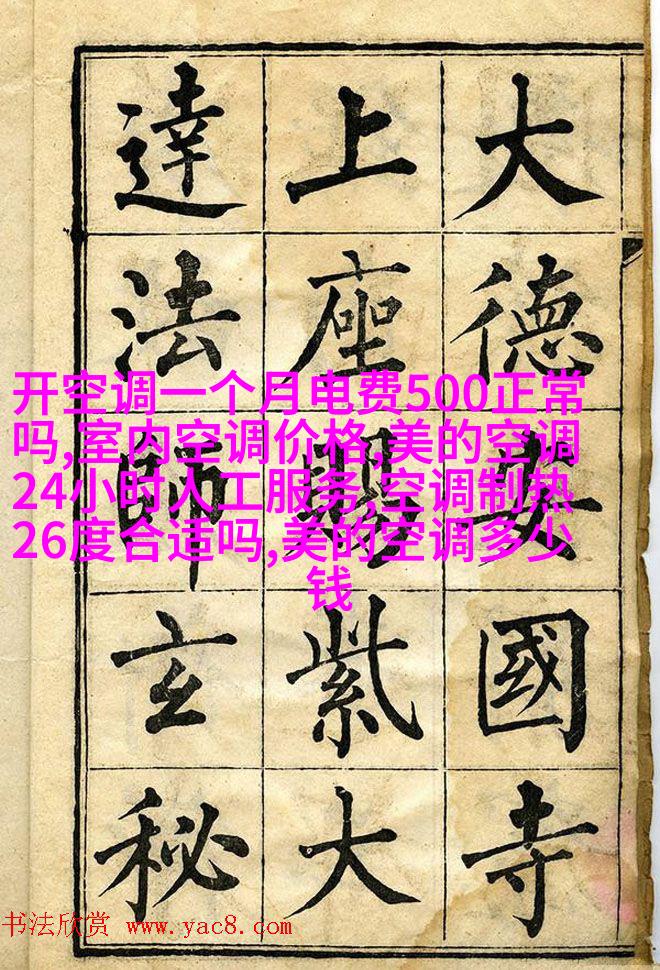 大德安國寺
上座賜紫大
達法師玄秘
开空调一个月电费500正常
吗,室内空调价格,美的空调
24小时人工服务,空调制热
26度合适吗,美的空调多少
钱
书法欣赏 www.yac8.com